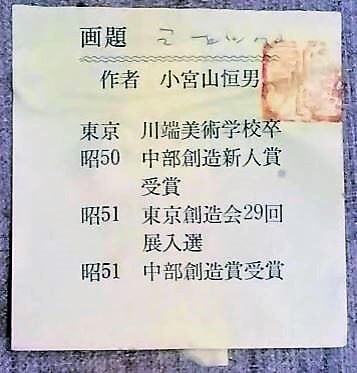 画題
作者 小宮山恒男
東京 川端美術学校卒
昭50 中部創造新人賞
受賞
昭51 東京創造会29回
展入選
昭51 中部創造賞受賞